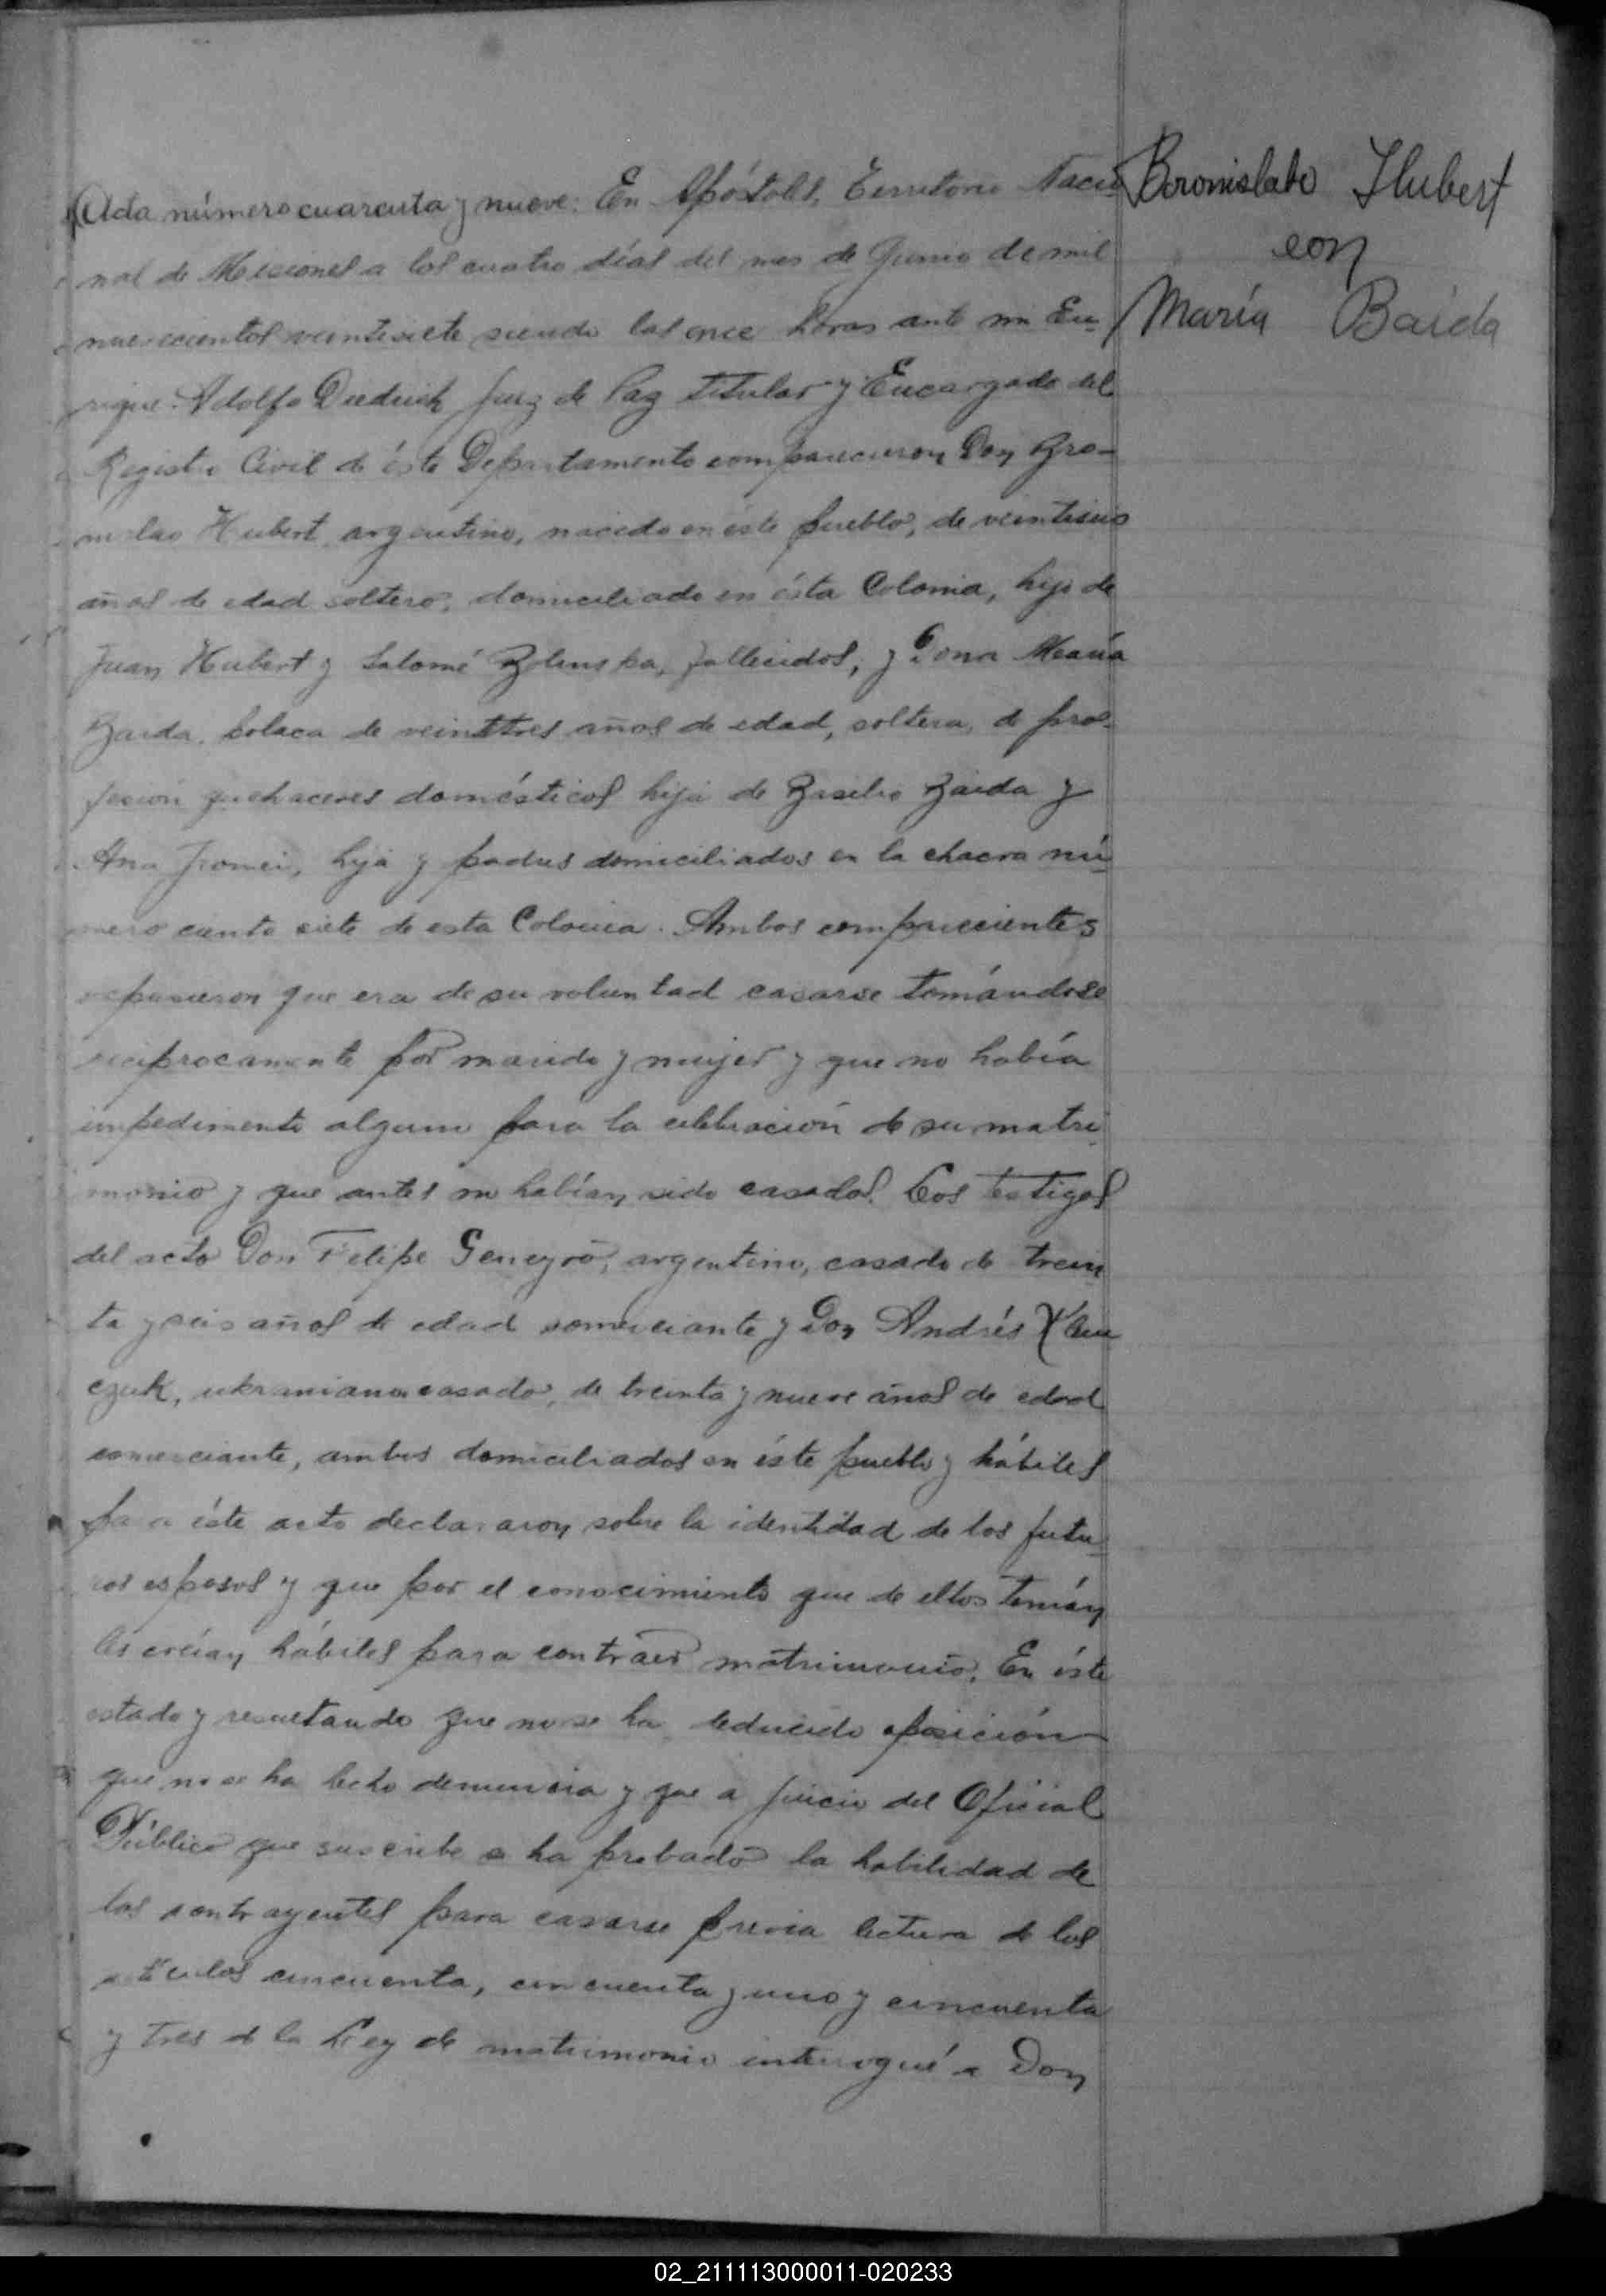 Acta número cuarenta y nueve: En Apóstoles, Territorio Nacio
nal de Misiones a los cuatro días del mes de Junio de mil
novecientos veintisiete siendo las once horas ante mi En-
rique Adolfo Diedrich Juez de Paz titular y Encargado del
Registro Civil de éste Departamento comparecieron Don Bro-
nislao Hubert argentino, nacido en éste pueblo, de veintiseis
años de edad soltero, domiciliado en ésta Colonia, hijo de
Juan Hubert y Salomé Zolinska, fallecidos, y Doña María
Baida, polaca de veinttres años de edad, soltera, de pro-
fesión quehaceres domésticos hija de Basilio Baida y
Ana, hija y padres domiciliados en la chacra nú
mero ciento siete de esta Colonia. Ambos comparecientes
expusieron que era de su voluntad casarse tomándose
recíprocamente por marido y mujer y que no había
impedimento alguno para la celebración de su matri
monio y que antes no habían sido casados. Los testigos
del acto Don Felipe Geneyro, argentino, casado de trein
ta y seis años de edad comerciante y Don Andrés
czuk, ukraniano casado, de treinta y nueve años de edad
comerciante, ambos domiciliados en éste pueblo y hábiles
para éste acto declararon sobre la identidad de los futu-
ros esposos y que por el conocimiento que de ellos tenían
los creían hábiles para contraer matrimonio. En éste
estado y resultando que no se ha deducido oposición
que no se ha hecho denuncia y que a juicio del Oficial
Público que suscribe se ha probado la habilidad de
los contrayentes para casarse previa lectura de los
artículos cincuenta, cincuenta y uno y cincuenta
y tres de la Ley de matrimonio interrogué a Don
Boronislabo Hubert
con
María Baida
02_211113000011-020233